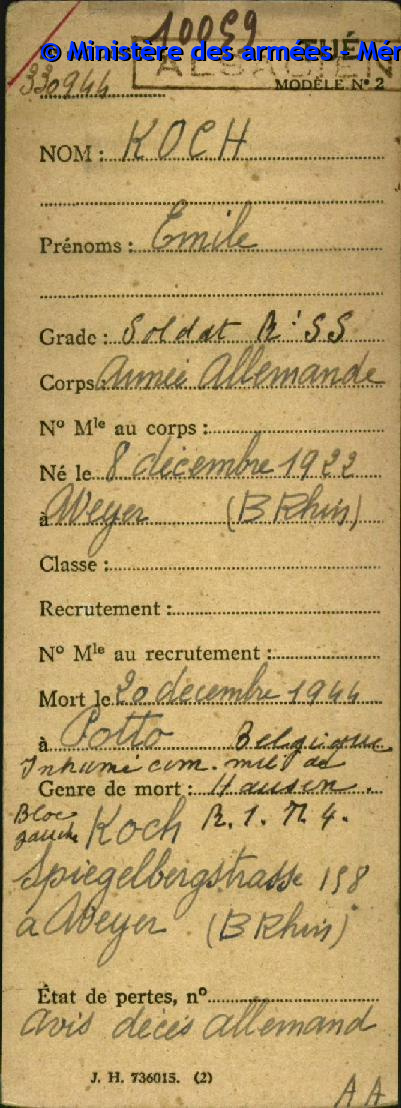 10059
© Ministère des armées - Mém
ALSACIEN
330944
MODÈLE N° 2
NOM : KOCH
Prénoms : Emile
Grade : Soldat R. SS
Corps Armée Allemande
N° Mle au corps :
Né le 8 décembre 1922
à Weyer (B Rhin)
Classe :
Recrutement :
N° Mle au recrutement :
Mort le 20 décembre 1944
à Potto Belgique
Inhumé cim. mil. de
Genre de mort : Hausen.
Bloc
gauche Koch R. 1. N. 4.
Spiegelbergstrasse 198
à Weyer (B Rhin)
État de pertes, n°
avis décès allemand
J. H. 736015. (2)
A A